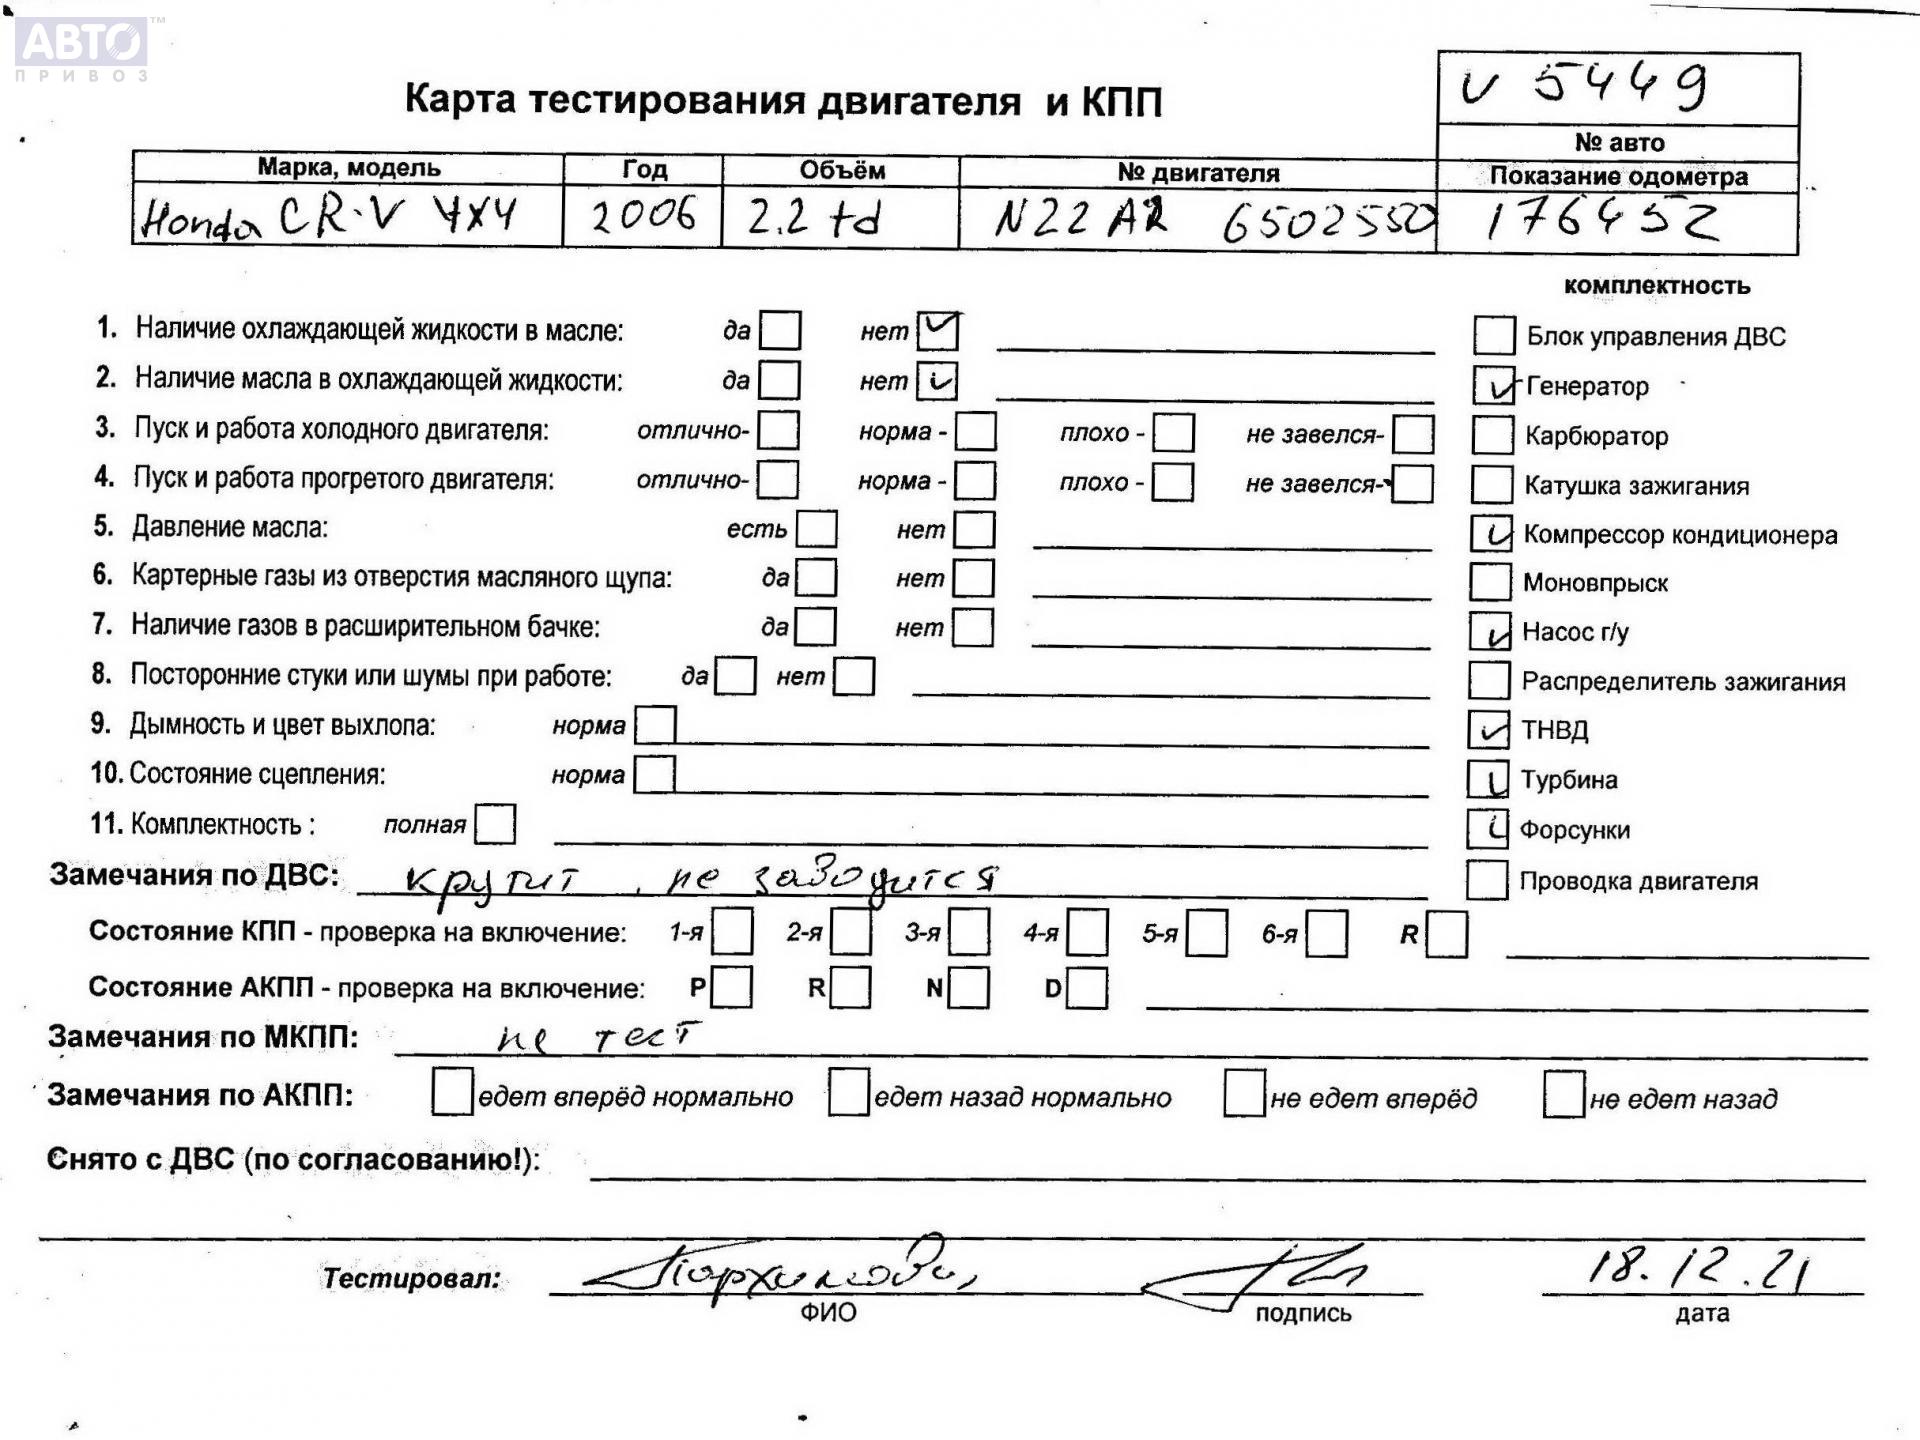 АВТО™
ПРИВОЗ
V 5449
Карта тестирования двигателя и КПП
№ авто
Марка, модель Год Объём № двигателя Показание одометра
Honda CR-V 4X4 2006 2.2 td N22 A2 6502550 176452
комплектность
1. Наличие охлаждающей жидкости в масле: да нет Блок управления ДВС
2. Наличие масла в охлаждающей жидкости: да нет Генератор
3. Пуск и работа холодного двигателя: отлично- норма - плохо - не завелся- Карбюратор
4. Пуск и работа прогретого двигателя: отлично- норма - плохо - не завелся- Катушка зажигания
5. Давление масла: есть нет Компрессор кондиционера
6. Картерные газы из отверстия масляного щупа: да нет Моновпрыск
7. Наличие газов в расширительном бачке: да нет Насос г/у
8. Посторонние стуки или шумы при работе: да нет Распределитель зажигания
9. Дымность и цвет выхлопа: норма ТНВД
10. Состояние сцепления: норма Турбина
11. Комплектность : полная Форсунки
Замечания по ДВС: крутит, не заводится Проводка двигателя
Состояние КПП - проверка на включение: 1-я 2-я 3-я 4-я 5-я 6-я R
Состояние АКПП - проверка на включение: P R N D
Замечания по МКПП: не тест
Замечания по АКПП: едет вперёд нормально едет назад нормально не едет вперёд не едет назад
Снято с ДВС (по согласованию!):
Тестировал: 18.12.21
ФИО подпись дата